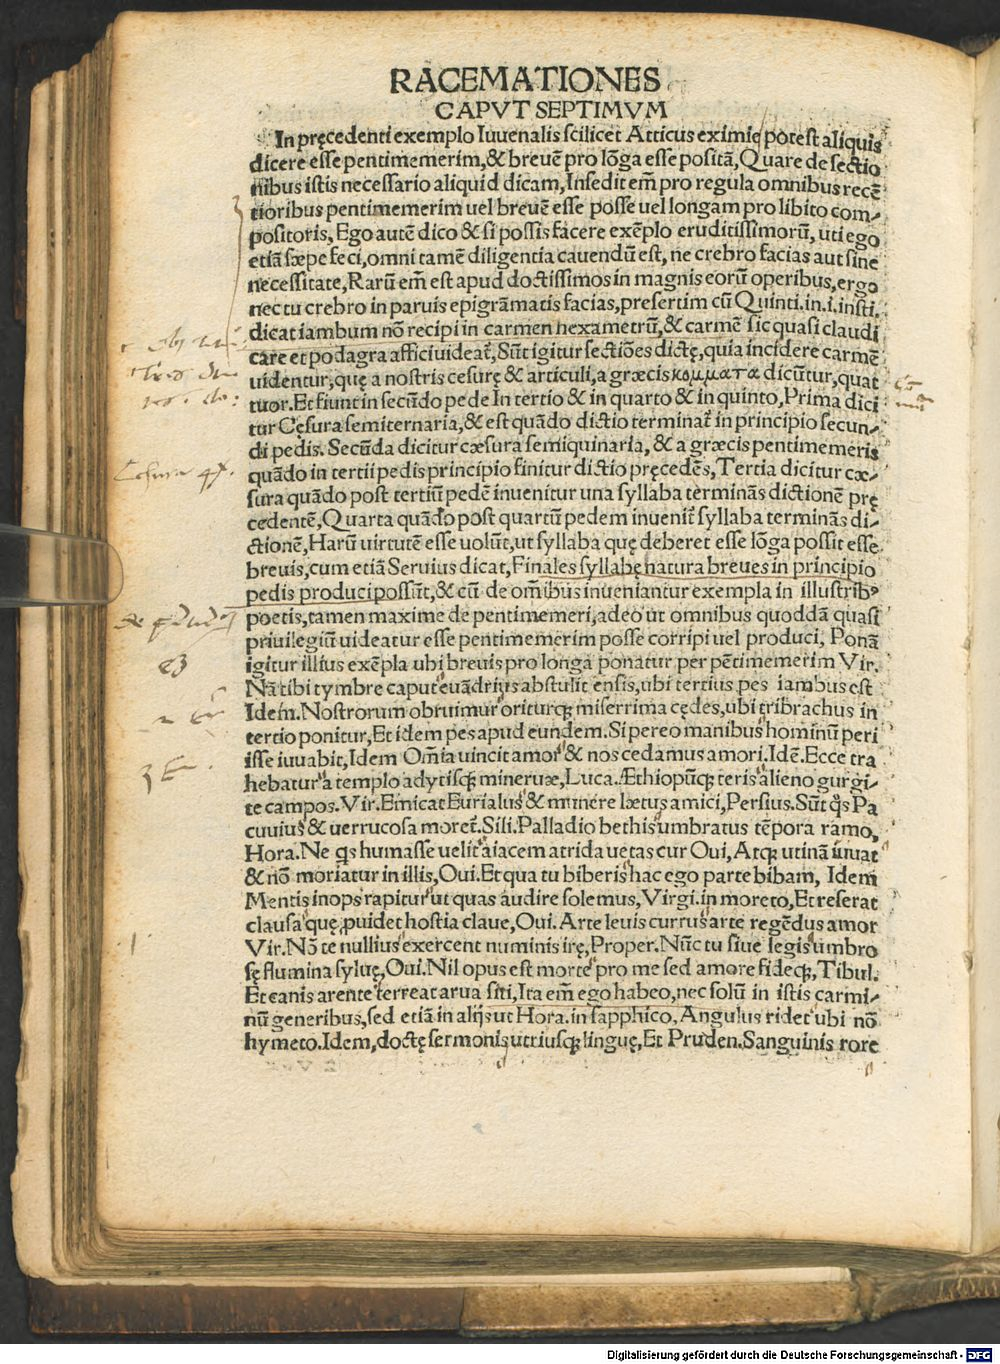 RACEMATIONES
CAPVT SEPTIMVM
In pręcedenti exemplo Iuuenalis scilicet Atticus eximie potest aliquis
dicere esse pentimemerim, & breuē pro lōga esse positā, Quare de sectio
nibus istis necessario aliquid dicam, Insedit em̄ pro regula omnibus recē
tioribus pentimemerim uel breuē esse posse uel longam pro libito com-
positoris, Ego autē dico & si possis facere exēplo eruditissimorū, uti ego
etiā sæpe feci, omni tamē diligentia cauendū est, ne crebro facias aut sine
necessitate, Rarū em̄ est apud doctissimos in magnis eorū operibus, ergo
nec tu crebro in paruis epigrāmatis facias, presertim cū Quinti. in. i. insti.
dicat iambum nō recipi in carmen hexametrū, & carmē sic quasi claudi
care et podagra affici uideat̄, Sūt igitur sectiōes dictę, quia incidere carmē
uidentur, quę a nostris cesurę & articuli, a græcis κομματα dicūtur, quat
tuor. Et fiunt in secūdo pede In tertio & in quarto & in quinto, Prima dici
tur Cęsura semiternaria, & est quādo dictio terminat̄ in principio secun-
di pedis. Secūda dicitur cæsura semiquinaria, & a græcis pentimemeris
quādo in tertii pedis principio finitur dictio pręcedēs, Tertia dicitur cæ-
sura quādo post tertiū pedē inuenitur una syllaba terminās dictionē prę
cedentē, Quarta quādo post quartū pedem inuenit̄ syllaba terminās di-
ctionē, Harū uirtutē esse uolūt, ut syllaba quę deberet esse lōga possit esse
breuis, cum etiā Seruius dicat, Finales syllabę natura breues in principio
pedis produci possūt, & cū de om̄ibus inueniantur exempla in illustribꝰ
poetis, tamen maxime de pentimemeri, adeo ut omnibus quoddā quasi
priuilegiū uideatur esse pentimemerim posse corripi uel produci, Ponā
igitur illius exēpla ubi breuis pro longa ponatur per pētimemerim Vir.
Nā tibi tymbre caput euādrius abstulit ensis, ubi tertius pes iambus est
Idem. Nostrorum obruimur oriturqꝫ miserrima cędes, ubi tribrachus in
tertio ponitur, Et idem pes apud eundem. Si pereo manibus hominū peri
isse iuuabit, Idem Om̄ia uincit amor & nos cedamus amori. Idē. Ecce tra
hebatur a templo adytisqꝫ mineruæ, Luca. Æthiopūqꝫ teris alieno gurgi-
te campos. Vir. Emicat Eurialus & munere lætus amici, Persius. Sūt qs Pa
cuuius & uerrucosa moret̄. Sili. Palladio bethis umbratus tēpora ramo,
Hora. Ne qs humasse uelit aiacem atrida uetas cur Oui, Atqꝫ utinā iuuat
& nō moriatur in illis, Oui. Et qua tu biberis hac ego parte bibam, Idem
Mentis inops rapitur ut quas audire solemus, Virgi. in moreto, Et reserat
clausa quę puidet hostia claue, Oui. Arte leuis currus arte regēdus amor
Vir. Nō te nullius exercent numinis irę, Proper. Nūc tu siue legis umbro
sę flumina syluę, Oui. Nil opus est morte pro me sed amore fideqꝫ, Tibul.
Et canis arente terreat arua siti, Ita em̄ ego habeo, nec solū in istis carmi-
nū generibus, sed etiā in alijs ut Hora. in sapphico, Angulus ridet ubi nō
hymeto. Idem, doctę sermonis utriusqꝫ linguę, Et Pruden. Sanguinis rore
Digitalisierung gefördert durch die Deutsche Forschungsgemeinschaft - DFG